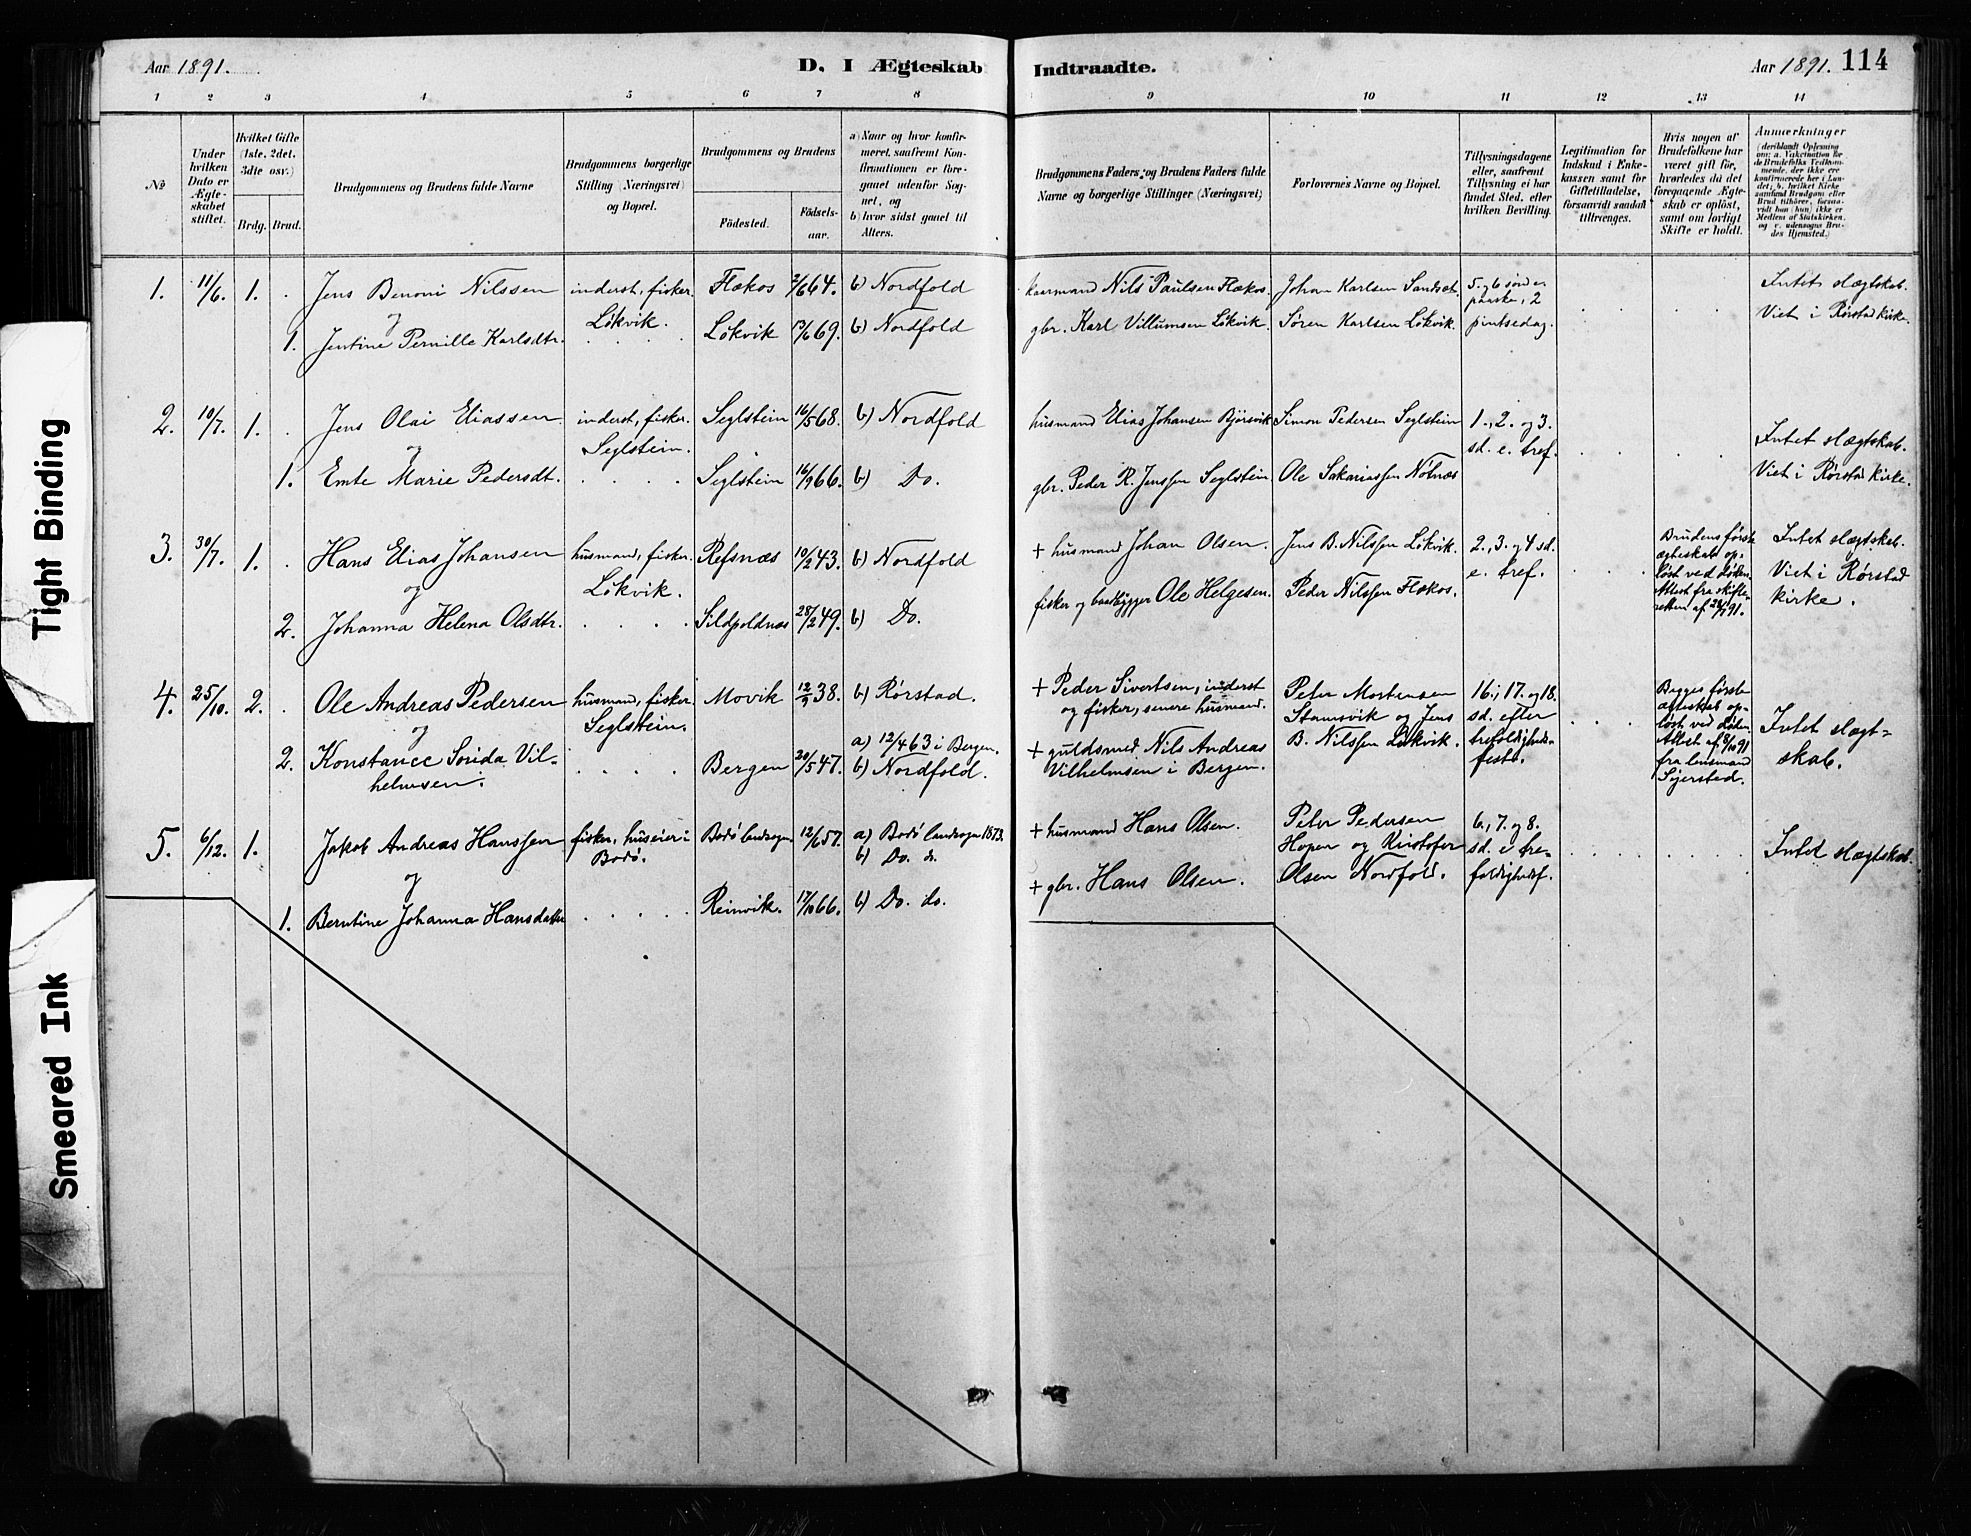 Tight Binding
Smeared Ink
Aar 1891.
D. I Ægteskab
Indtraadte.
Aar 1891. 114
1 2 3 4 5 6 7 8 9 10 11 12 13 14
No
Under hvilken Dato er Ægteskabet stiftet.
Hvilket Gifte (1ste, 2det, 3dte osv.)
Brdg. Brud.
Brudgommens og Brudens fulde Navne
Brudgommens borgerlige Stilling (Næringsvei) og Bopæl.
Brudgommens og Brudens
Födested.
Födselsaar.
a) Naar og hvor konfirmeret, saafremt Konfirmationen er foregaaet udenfor Sognet, og
b) hvor sidst gaaet til Alters.
Brudgommens Faders og Brudens Faders fulde Navne og borgerlige Stillinger (Næringsvei)
Forlovernes Navne og Bopæl.
Tillysningsdagene eller, saafremt Tillysning ei har fundet Sted, efter hvilken Bevilling.
Legitimation for Indskud i Enkekassen samt for Giftetilladelse, forsaavidt saadan tiltrænges.
Hvis nogen af Brudefolkene har været gift för, hvorledes da det foregaaende Ægteskab er oplöst, samt om lovligt Skifte er holdt.
Anmærkninger (deriblandt Oplysning om: a. Vakcination for de Brudefolks Vedkommende, der ikke ere konfirmerede her i Landet; b. hvilket Kirkesamfund Brudgom eller Brud tilhörer, forsaavidt han (hun) ikke er Medlem af Statskirken, og c. udensogns Brudes Hjemsted.)
1. 11/6. 1. Jens Benoni Nilssen inderst, fisker. Flækos 2/6 64. b) Nordfold kaarmand Nils Paulsen Flækos. Johan Karlsen Sandset. 5. og 6 sönd e. paaske, 2 Intet slægtskab.
og Lökvik.
1. Jentine Pernille Karlsdtr. Lökvik 13/6 69. b) Nordfold gbr. Karl Villumsen Lökvik. Sören Karlsen Lökvik. pintsedag. Viet i Rörstad kirke.
2. 10/7. 1. Jens Olai Eliassen inderst, fisker. Seglstein 16/5 68. b) Nordfold husmand Elias Johansen Björsvik Simon Pedersen Seglstein 1., 2. og 3. sd. e. tref. Intet slægtskab.
og Seglstein.
1. Emte Marie Pedersdt. Seglstein 16/9 66. b) Do. gbr. Peder R. Jenssen Seglstein Ole Sakariassen Nötnæs Viet i Rörstad kirke.
3. 30/7. 1. Hans Elias Johansen husmand, fisker. Refsnæs 10/2 43. b) Nordfold + husmand Johan Olsen. Jens B. Nilssen Lökvik. 2., 3. og 4 sd. e. tref. Brudens förste ægteskab oplöst ved döden. Attest fra skifteretten af 28/7 91. Intet slægtskab.
og Lökvik.
2. Johanna Helena Olsdtr. Sildpoldnæs 28/2 49. b) Do. fisker og baadbygger Ole Helgesen. Peder Nilssen Flækos. Viet i Rörstad kirke.
4. 25/10. 2. Ole Andreas Pedersen husmand, fisker Movik 12/9 38. b) Rörstad. + Peder Sivertsen, inderst og fisker, senere husmand. Peter Mortensen Stamsvik og Jens B. Nilssen Lökvik. 16., 17. og 18. sd. efter trefoldighedsfest. Begges förste ægteskab oplöst ved döden. Attest af 8/10 91 fra lensmand Sjersted. Intet slægtskab.
og Seglstein.
2. Konstance Sörida Vilhelmsen. Bergen 20/5 47. a) 12/4 63 i Bergen. b) Nordfold. + guldsmed Nils Andreas Vilhelmsen i Bergen.
5. 6/12. 1. Jakob Andreas Hanssen fisker, huseier i Bodö. Bodö landsogn. 12/6 57. a) Bodö landsogn 1873. b) Do. do. + husmand Hans Olsen. Peter Pedersen Hopen og Kristofer Olsen Nordfold. 6., 7. og 8. sd. e trefoldighedsf. Intet slægtskab.
og
1. Berntine Johanna Hansdatter Reinvik. 17/10 66. b) Do. do. + gbr. Hans Olsen.